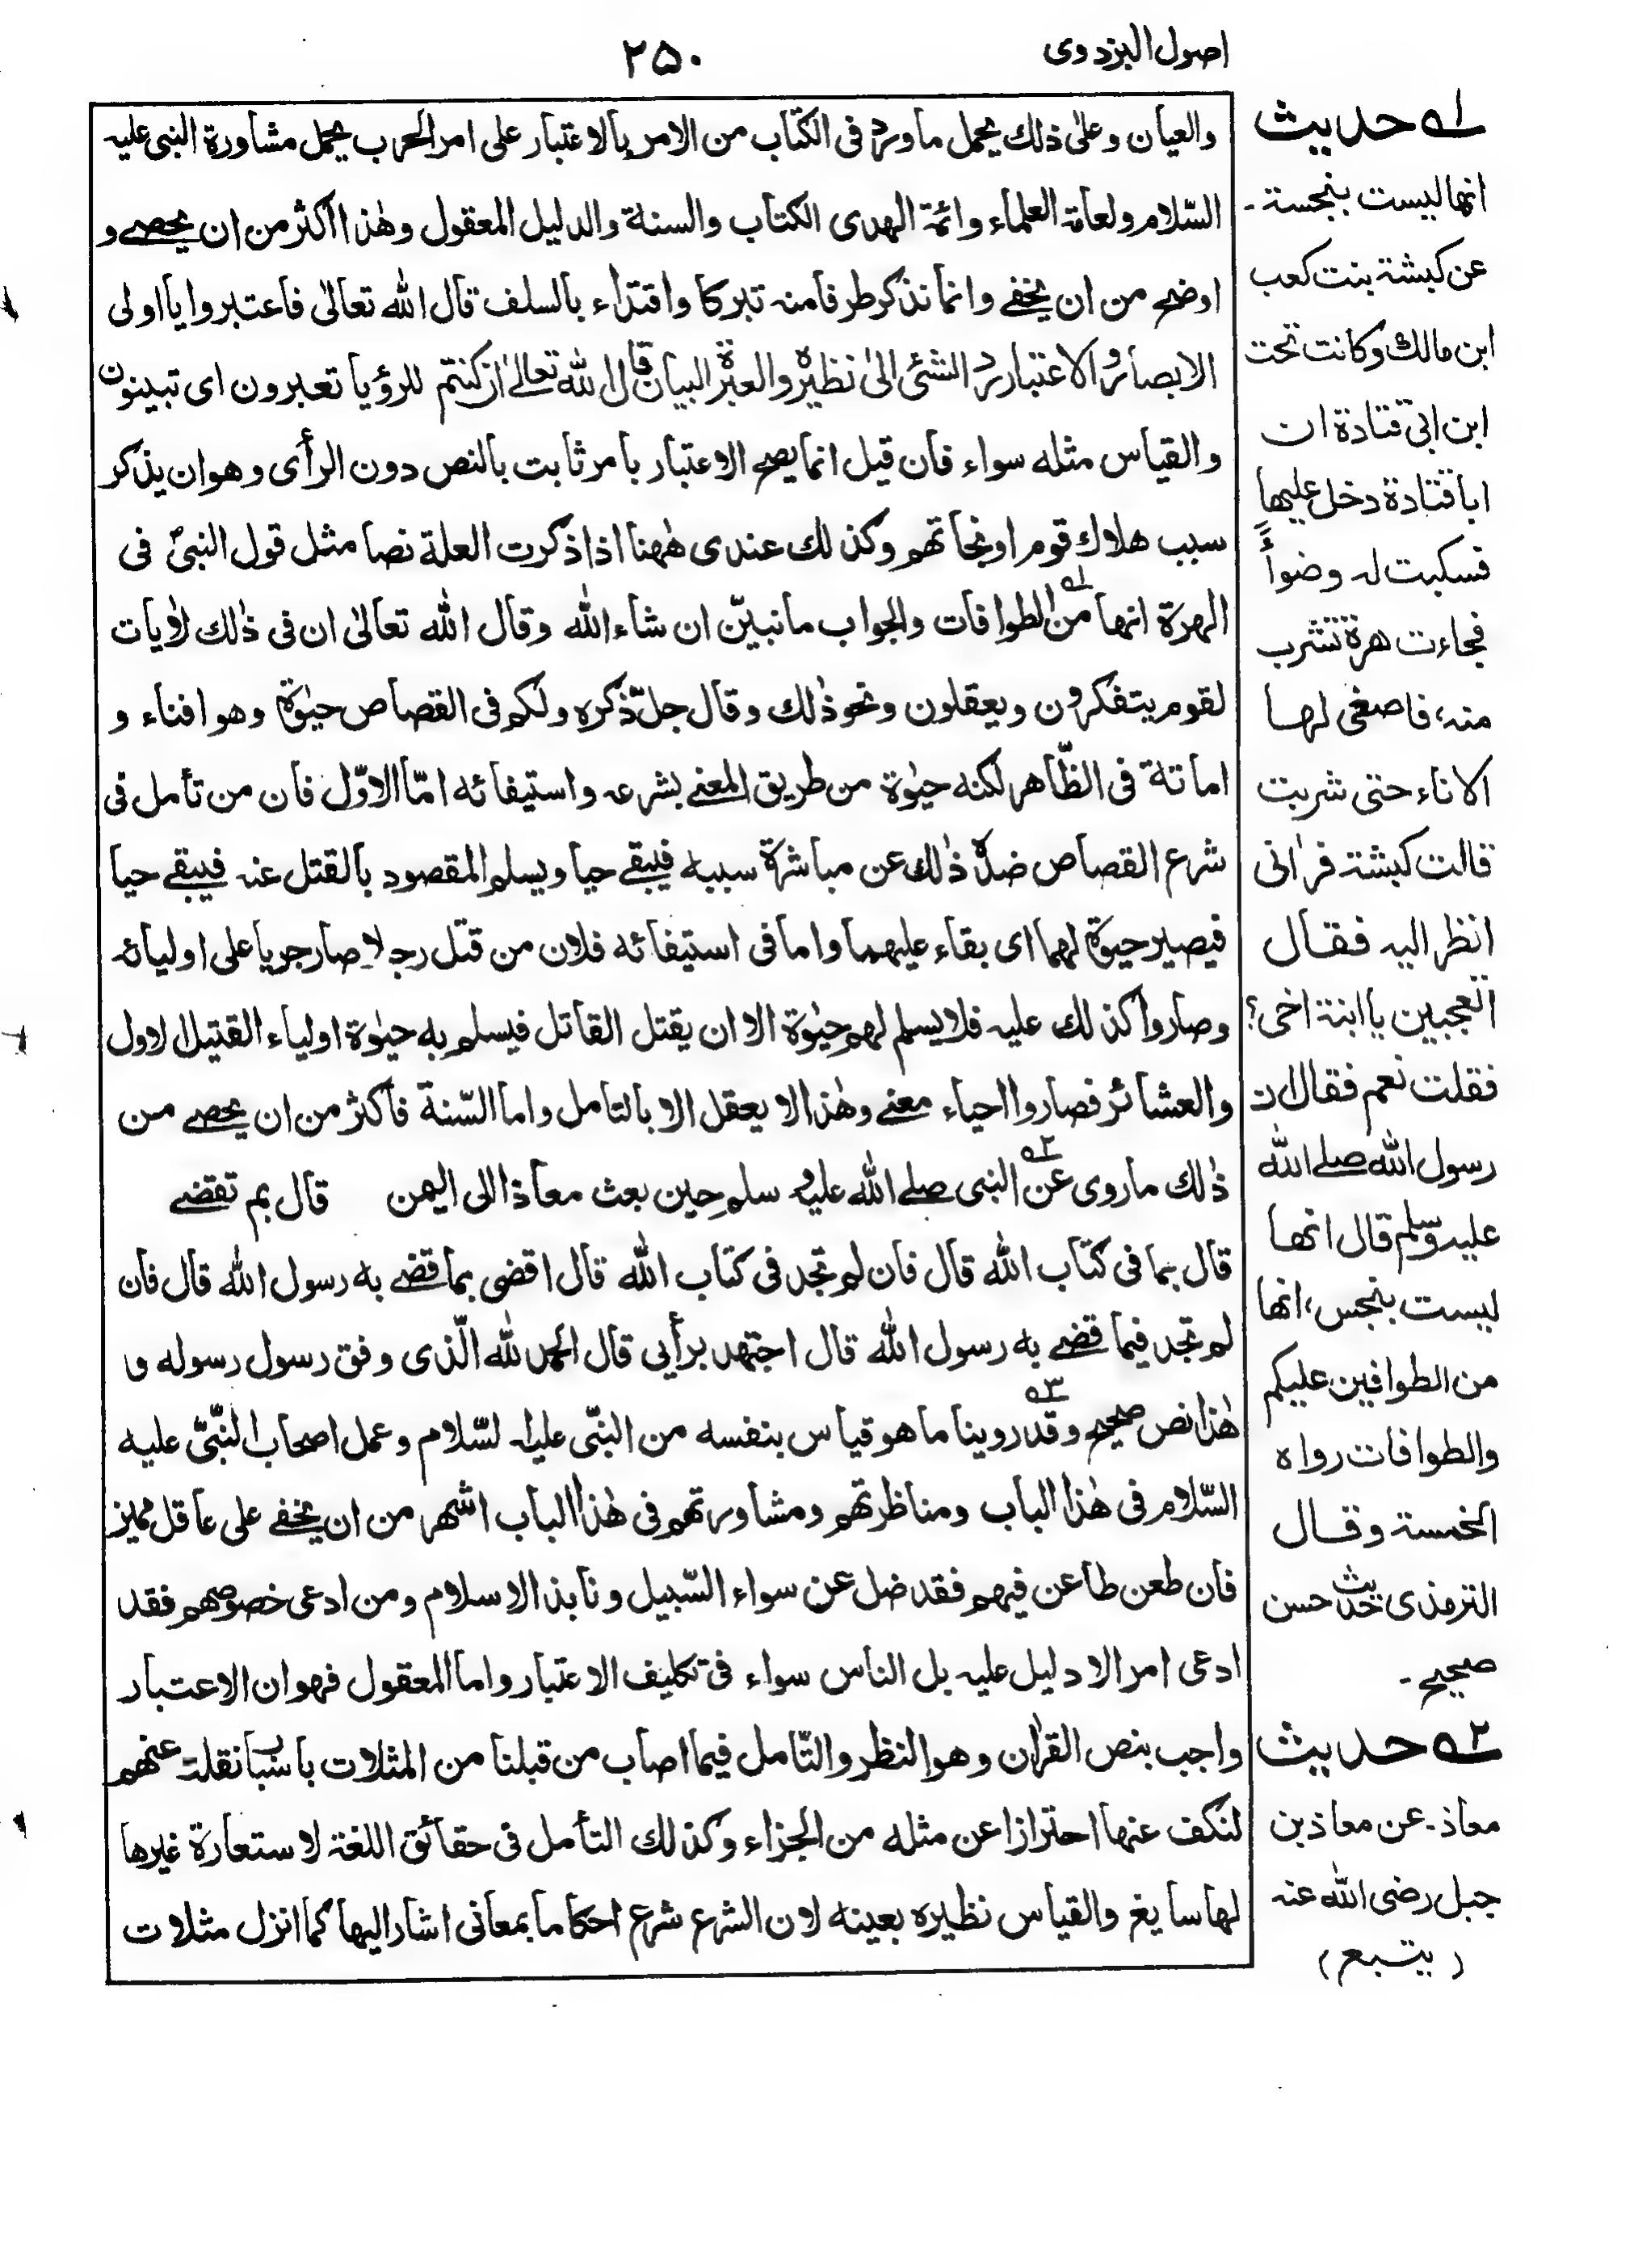 اصول البزدوی
۲۵۰
والعیان وعلیٰ ذلك یحمل ماورد فی الکتاب من الامر بالاعتبار علی امر الحرب یحمل مشاورة النبی علیہ
السّلام ولعامۃ العلماء وائمۃ الهدی الکتاب والسنة والدلیل المعقول وهٰذا اکثر من ان یحصے و
اوضح من ان یخفے وانما نذکر طرفا منہ تبرکا واقتداء بالسلف قال اللہ تعالیٰ فاعتبروا یا اولی
الابصار والاعتبار رد الشئ الیٰ نظیرہ والعبرة البیان قال اللہ تعالےٰ ان کنتم للرؤیا تعبرون ای تبینون
والقیاس مثله سواء فان قیل انما یصح الاعتبار بامر ثابت بالنص دون الرأی وهو ان یذکر
سبب هلاك قوم او نجاتهم وکذلك عندی هٰهنا اذا ذکرت العلة نصا مثل قول النبیؑ فی
الهرة انها من الطوافات والجواب مانبیّن ان شاء اللہ وقال اللہ تعالیٰ ان فی ذٰلك لاٰیات
لقوم یتفکرون ویعقلون ونحو ذٰلك وقال جلّ ذکره ولکم فی القصاص حیٰوة وهو افناء و
اماتة فی الظّاهر لکنه حیٰوة من طریق المعنے بشرعہ واستیفائه امّا الاوّل فان من تأمل فی
شرع القصاص صدّہ ذٰلك عن مباشرة سببه فیبقے حیا ویسلم المقصود بالقتل عنہ فیبقے حیا
فیصیر حیوة لهما ای بقاء علیهما واما فی استیفائه فلان من قتل رجلا صار حربا علی اولیائہ
وصاروا کذلك علیہ فلا یسلم لهم حیٰوة الا ان یقتل القاتل فیسلم به حیٰوة اولیاء القتیل الاول
والعشائر فصاروا احیاء معنے وهٰذا لا یعقل الا بالتامل واما السّنة فاکثر من ان یحصے من
ذٰلك ماروی عن النبی صلے اللہ علیہ و سلم حین بعث معاذا الی الیمن قال بم تقضے
قال بما فی کتاب اللہ قال فان لم تجد فی کتاب اللہ قال اقضی بما قضے به رسول اللہ قال فان
لم تجد فیما قضے به رسول اللہ قال اجتهد برأیی قال الحمد للہ الّذی وفق رسول رسوله و
هٰذا نص صحیح وقد روینا ما هو قیاس بنفسه من النبّی علیہ السّلام وعمل اصحاب النّبیّ علیہ
السّلام فی هٰذا الباب ومناظرتهم ومشاورتهم فی هٰذا الباب اشهر من ان یخفے علی عاقل ممیز
فان طعن طاعن فیهم فقد ضل عن سواء السّبیل ونابذ الاسلام ومن ادعی خصوصهم فقد
ادعی امرا لا دلیل علیہ بل الناس سواء فی تکلیف الاعتبار واما المعقول فهو ان الاعتبار
واجب بنص القرآن وهو النظر والتّامل فیما اصاب من قبلنا من المثلات باسباب نقلت عنهم
لنکف عنها احترازا عن مثله من الجزاء وکذلك التأمل فی حقائق اللغة لاستعارة غیرها
لها سایغ والقیاس نظیره بعینه لان الشرع شرع احکاما بمعانی اشار الیها کما انزل مثلات
۱ه حدیث
انها لیست بنجسة۔
عن کبشة بنت کعب
ابن مالك وکانت تحت
ابن ابی قتادة ان
ابا قتادة دخل علیها
فسکبت له وضوأً
فجاءت هرة تشرب
منہ، فاصغی لها
الاناء حتی شربت
قالت کبشة فرأنی
انظر الیہ فقال
اتعجبین یا ابنة اخی؟
فقلت نعم فقال ان
رسول اللہ صلے اللہ
علیہ وسلم قال انها
لیست بنجس، انها
من الطوافین علیکم
والطوافات رواه
الخمسة وقال
الترمذی حدیث حسن
صحیح۔
۲ه حدیث
معاذ۔ عن معاذ بن
جبل رضی اللہ عنہ
(یتبع)